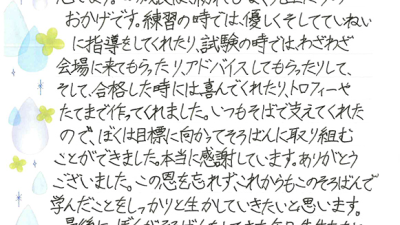 おかげです。練習の時では、優しくそしてていねい
に指導をしてくれたり、試験の時では、わざわざ
会場に来てもらったり、アドバイスしてもらったりして、
そして、合格した時には喜んでくれたり、トロフィーや
たてまで作ってくれました。いつもそばで支えてくれた
ので、ぼくは目標に向かってそろばんに取り組む
ことができました。本当に感謝しています。ありがとう
ございました。この恩を忘れず、これからもこのそろばんで
学んだことをしっかりと生かしていきたいと思います。